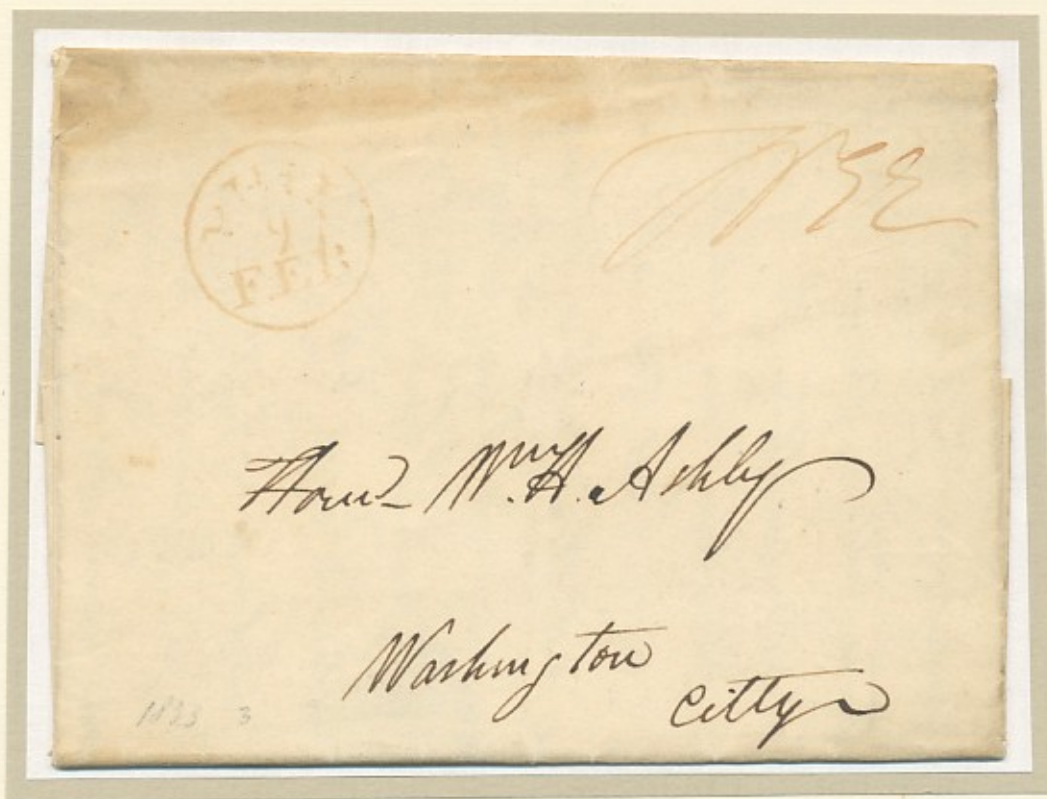 9
FEB
FREE
Hon.
Wm. H. Ashley
Washington
Citty